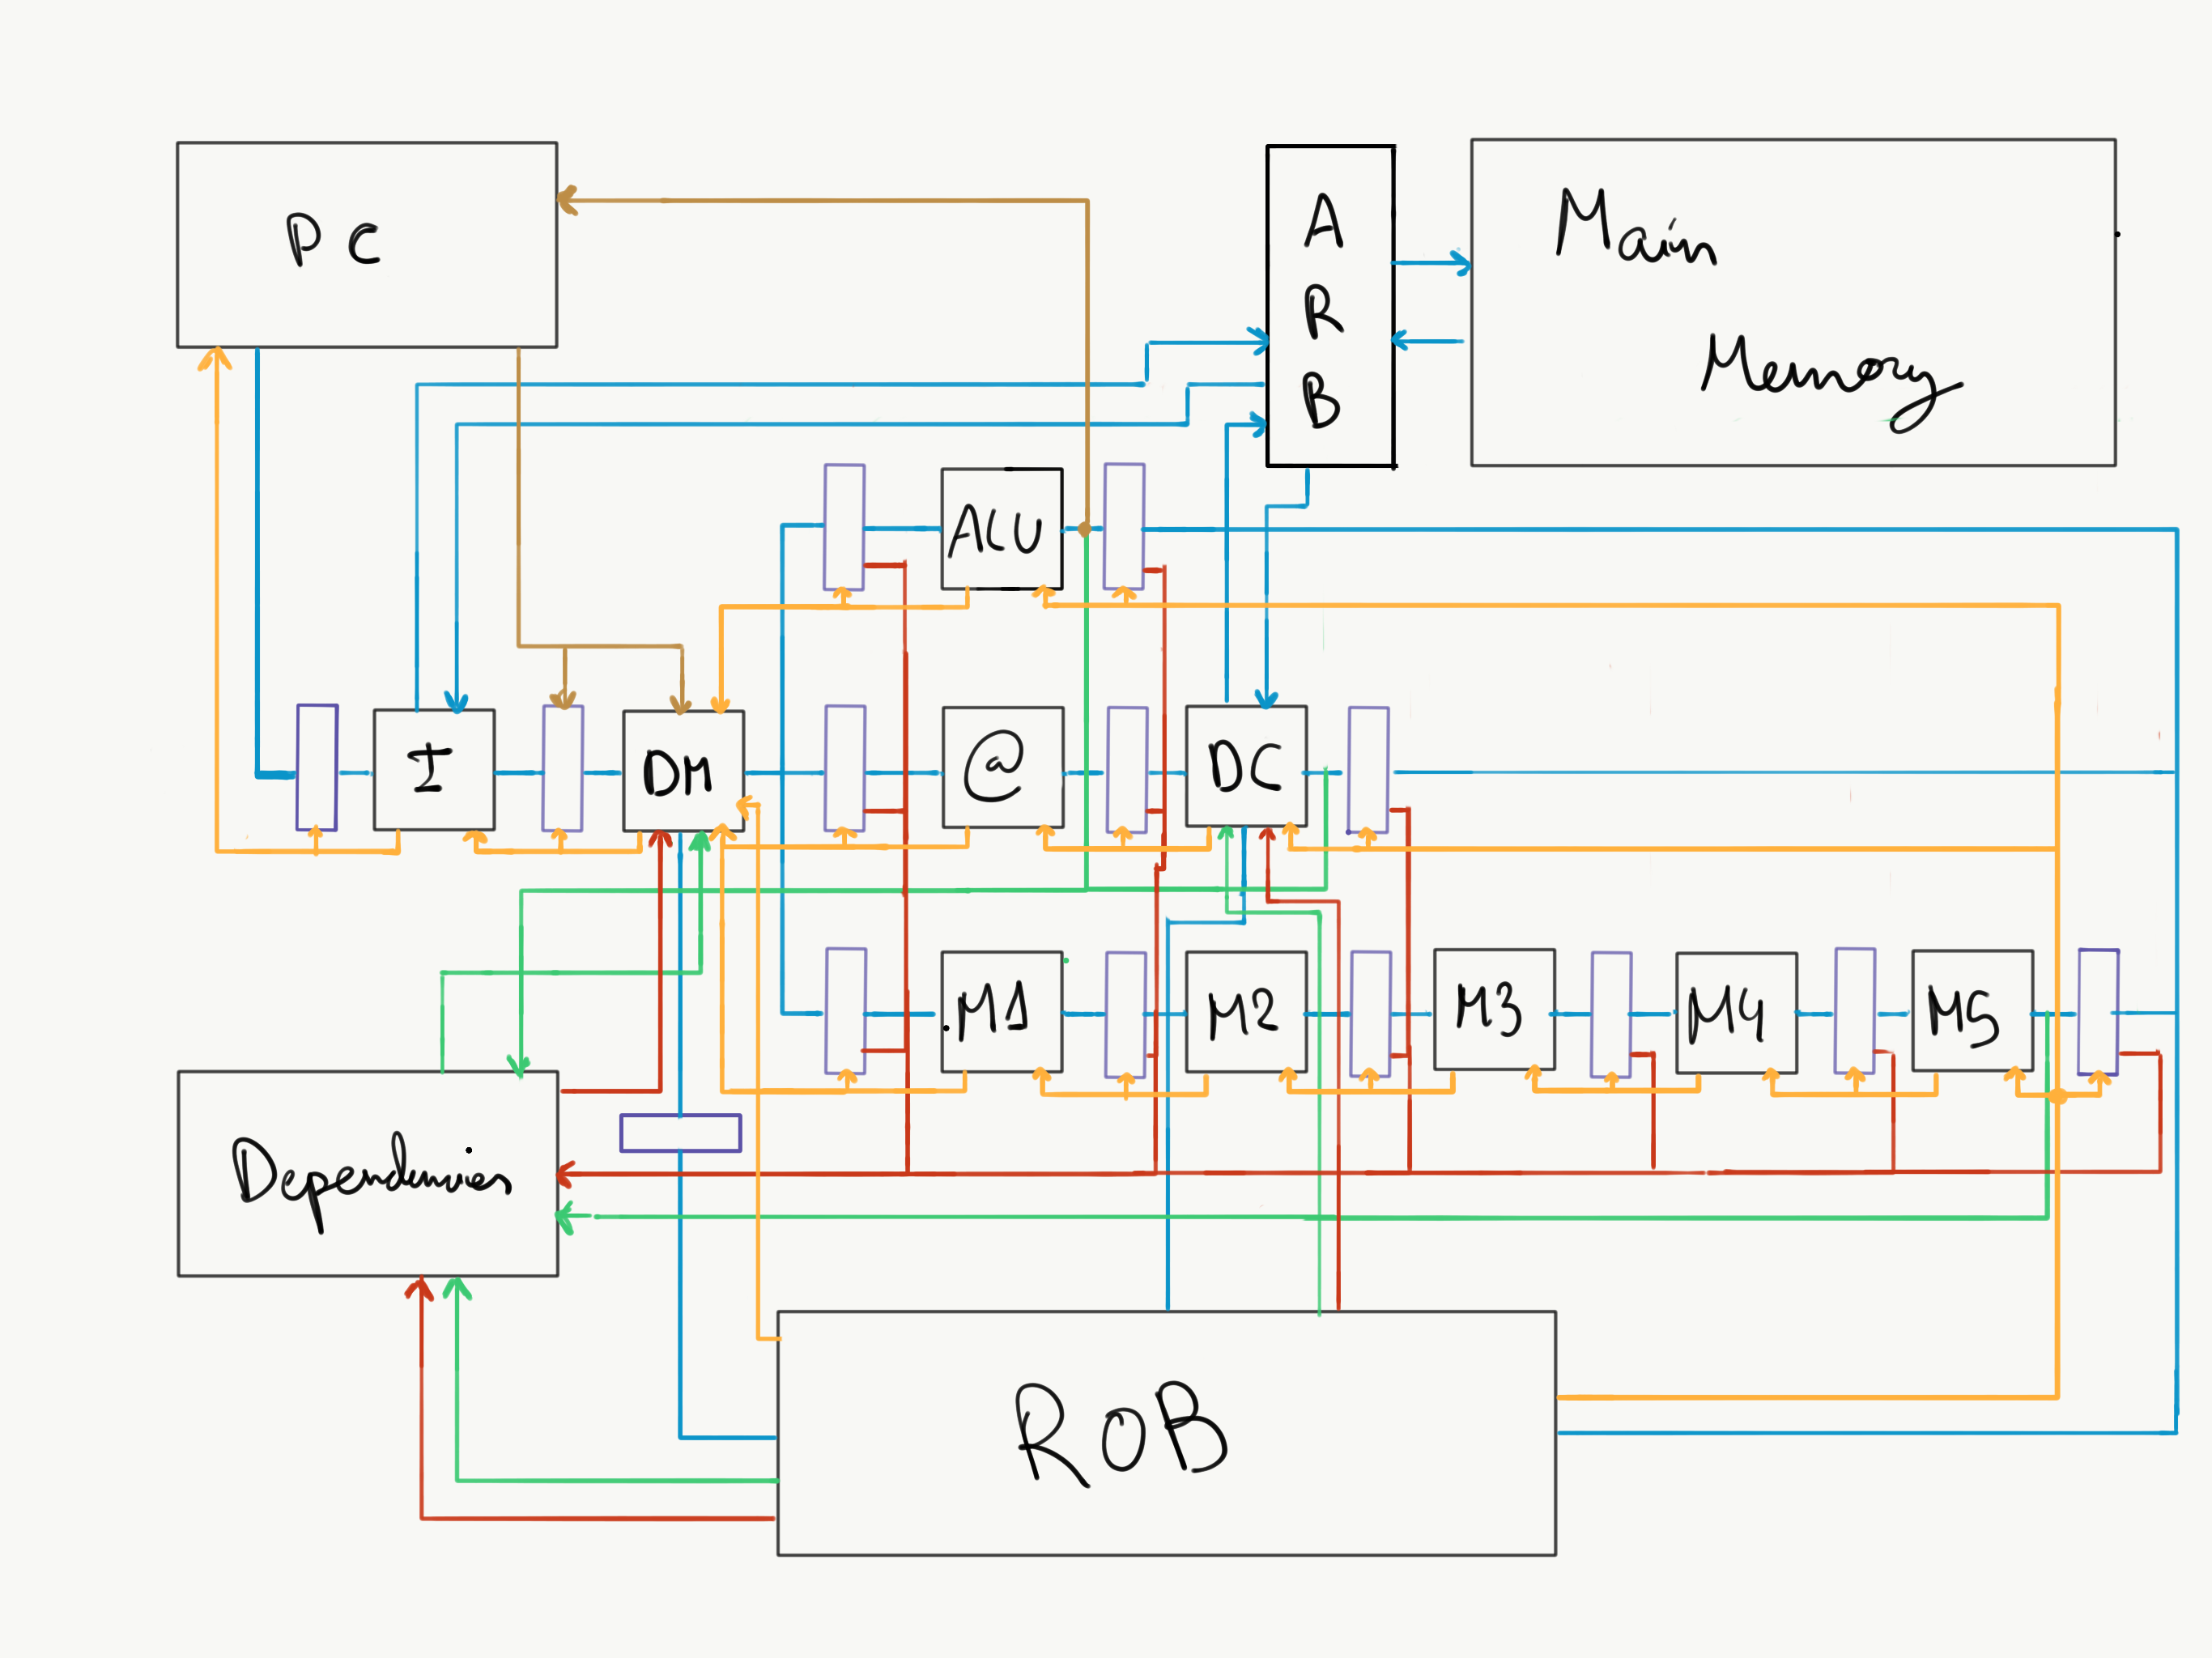 PC
A
R
B
Main
Memory
ALU
I
DM
@
DC
M1
M2
M3
M4
M5
Dependencies
ROB